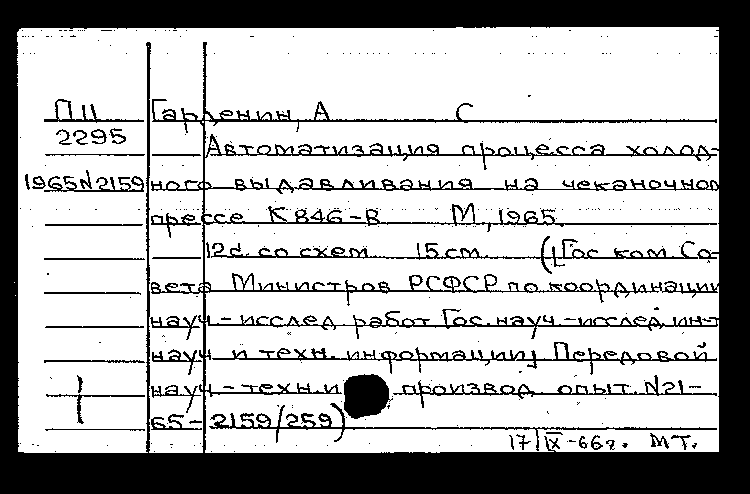 П11 Гарденин, А С
2295 Автоматизация процесса холод-
1965№2159 ного выдавливания на чеканочном
прессе К 846-В М., 1965.
12с. со схем 15 см. ([Гос ком Со-
вета Министров РСФСР по координации
науч-исслед работ Гос. науч.-исслед. ин-т
науч и техн. информации] Передовой
науч-техн. и производ опыт. №21-
65-2159/259)
17/IX-66г. МТ.